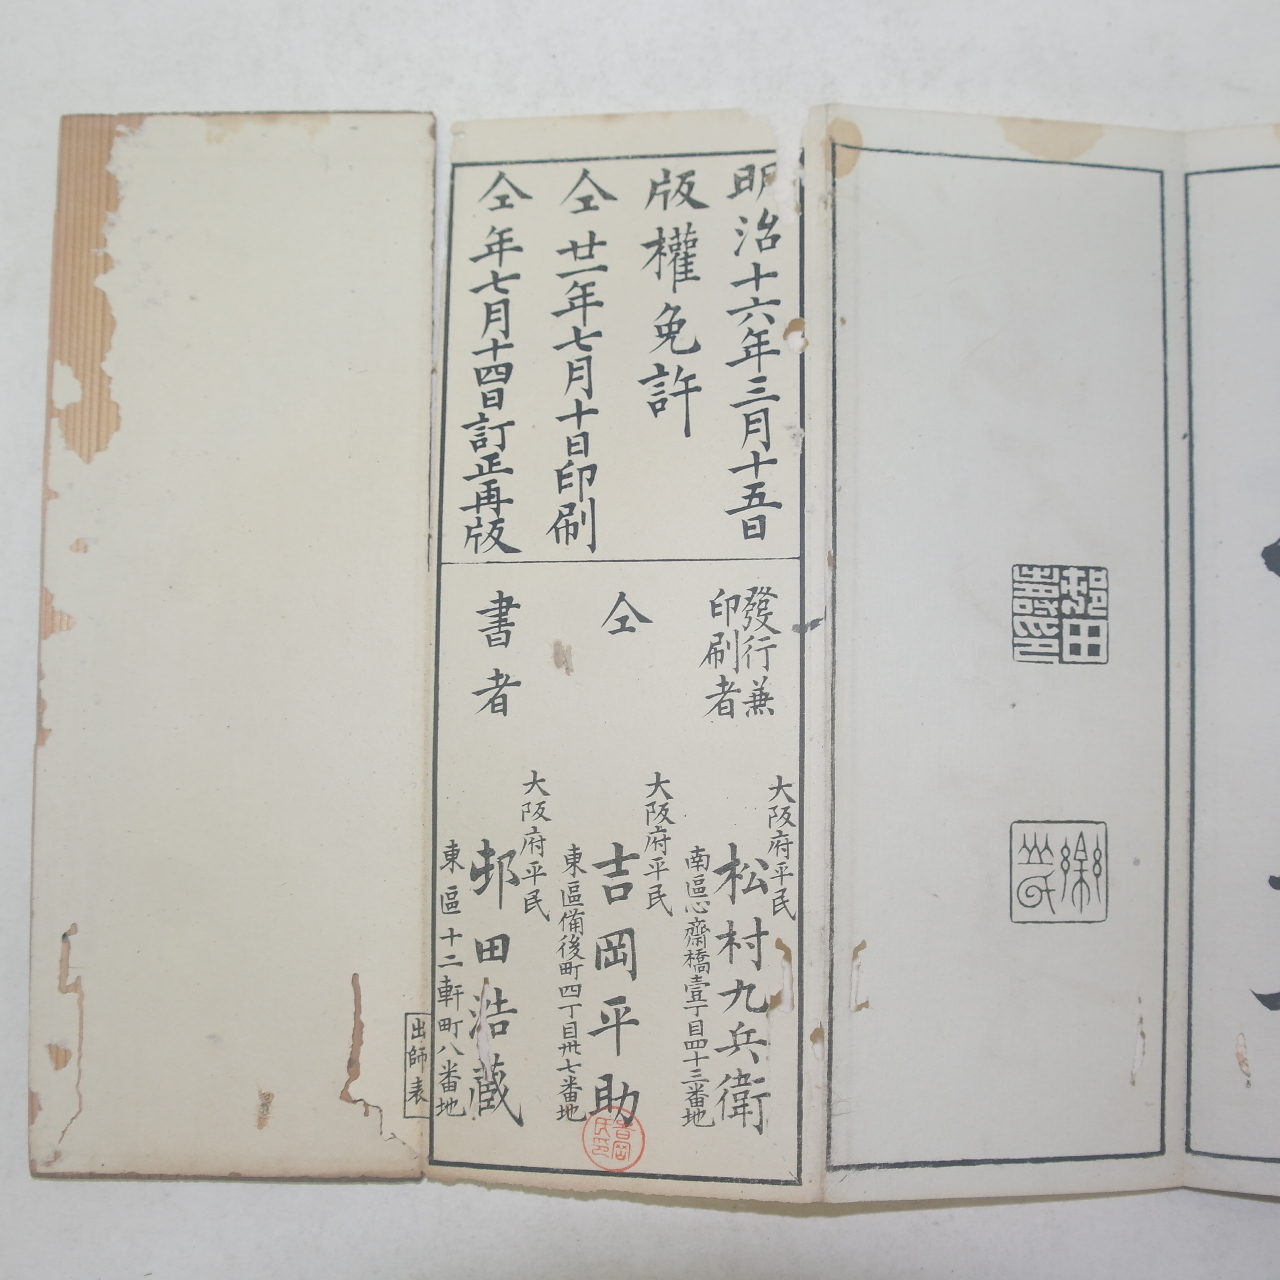 明治十六年三月十五日
版權免許
仝廿一年七月十日印刷
仝年七月十四日訂正再版
發行兼
印刷者
大阪府平民
松村九兵衛
南區心齋橋壹丁目四十三番地
仝
大阪府平民
吉岡平助
東區備後町四丁目卅七番地
書者
大阪府平民
邨田浩蔵
東區十二軒町八番地
出師表